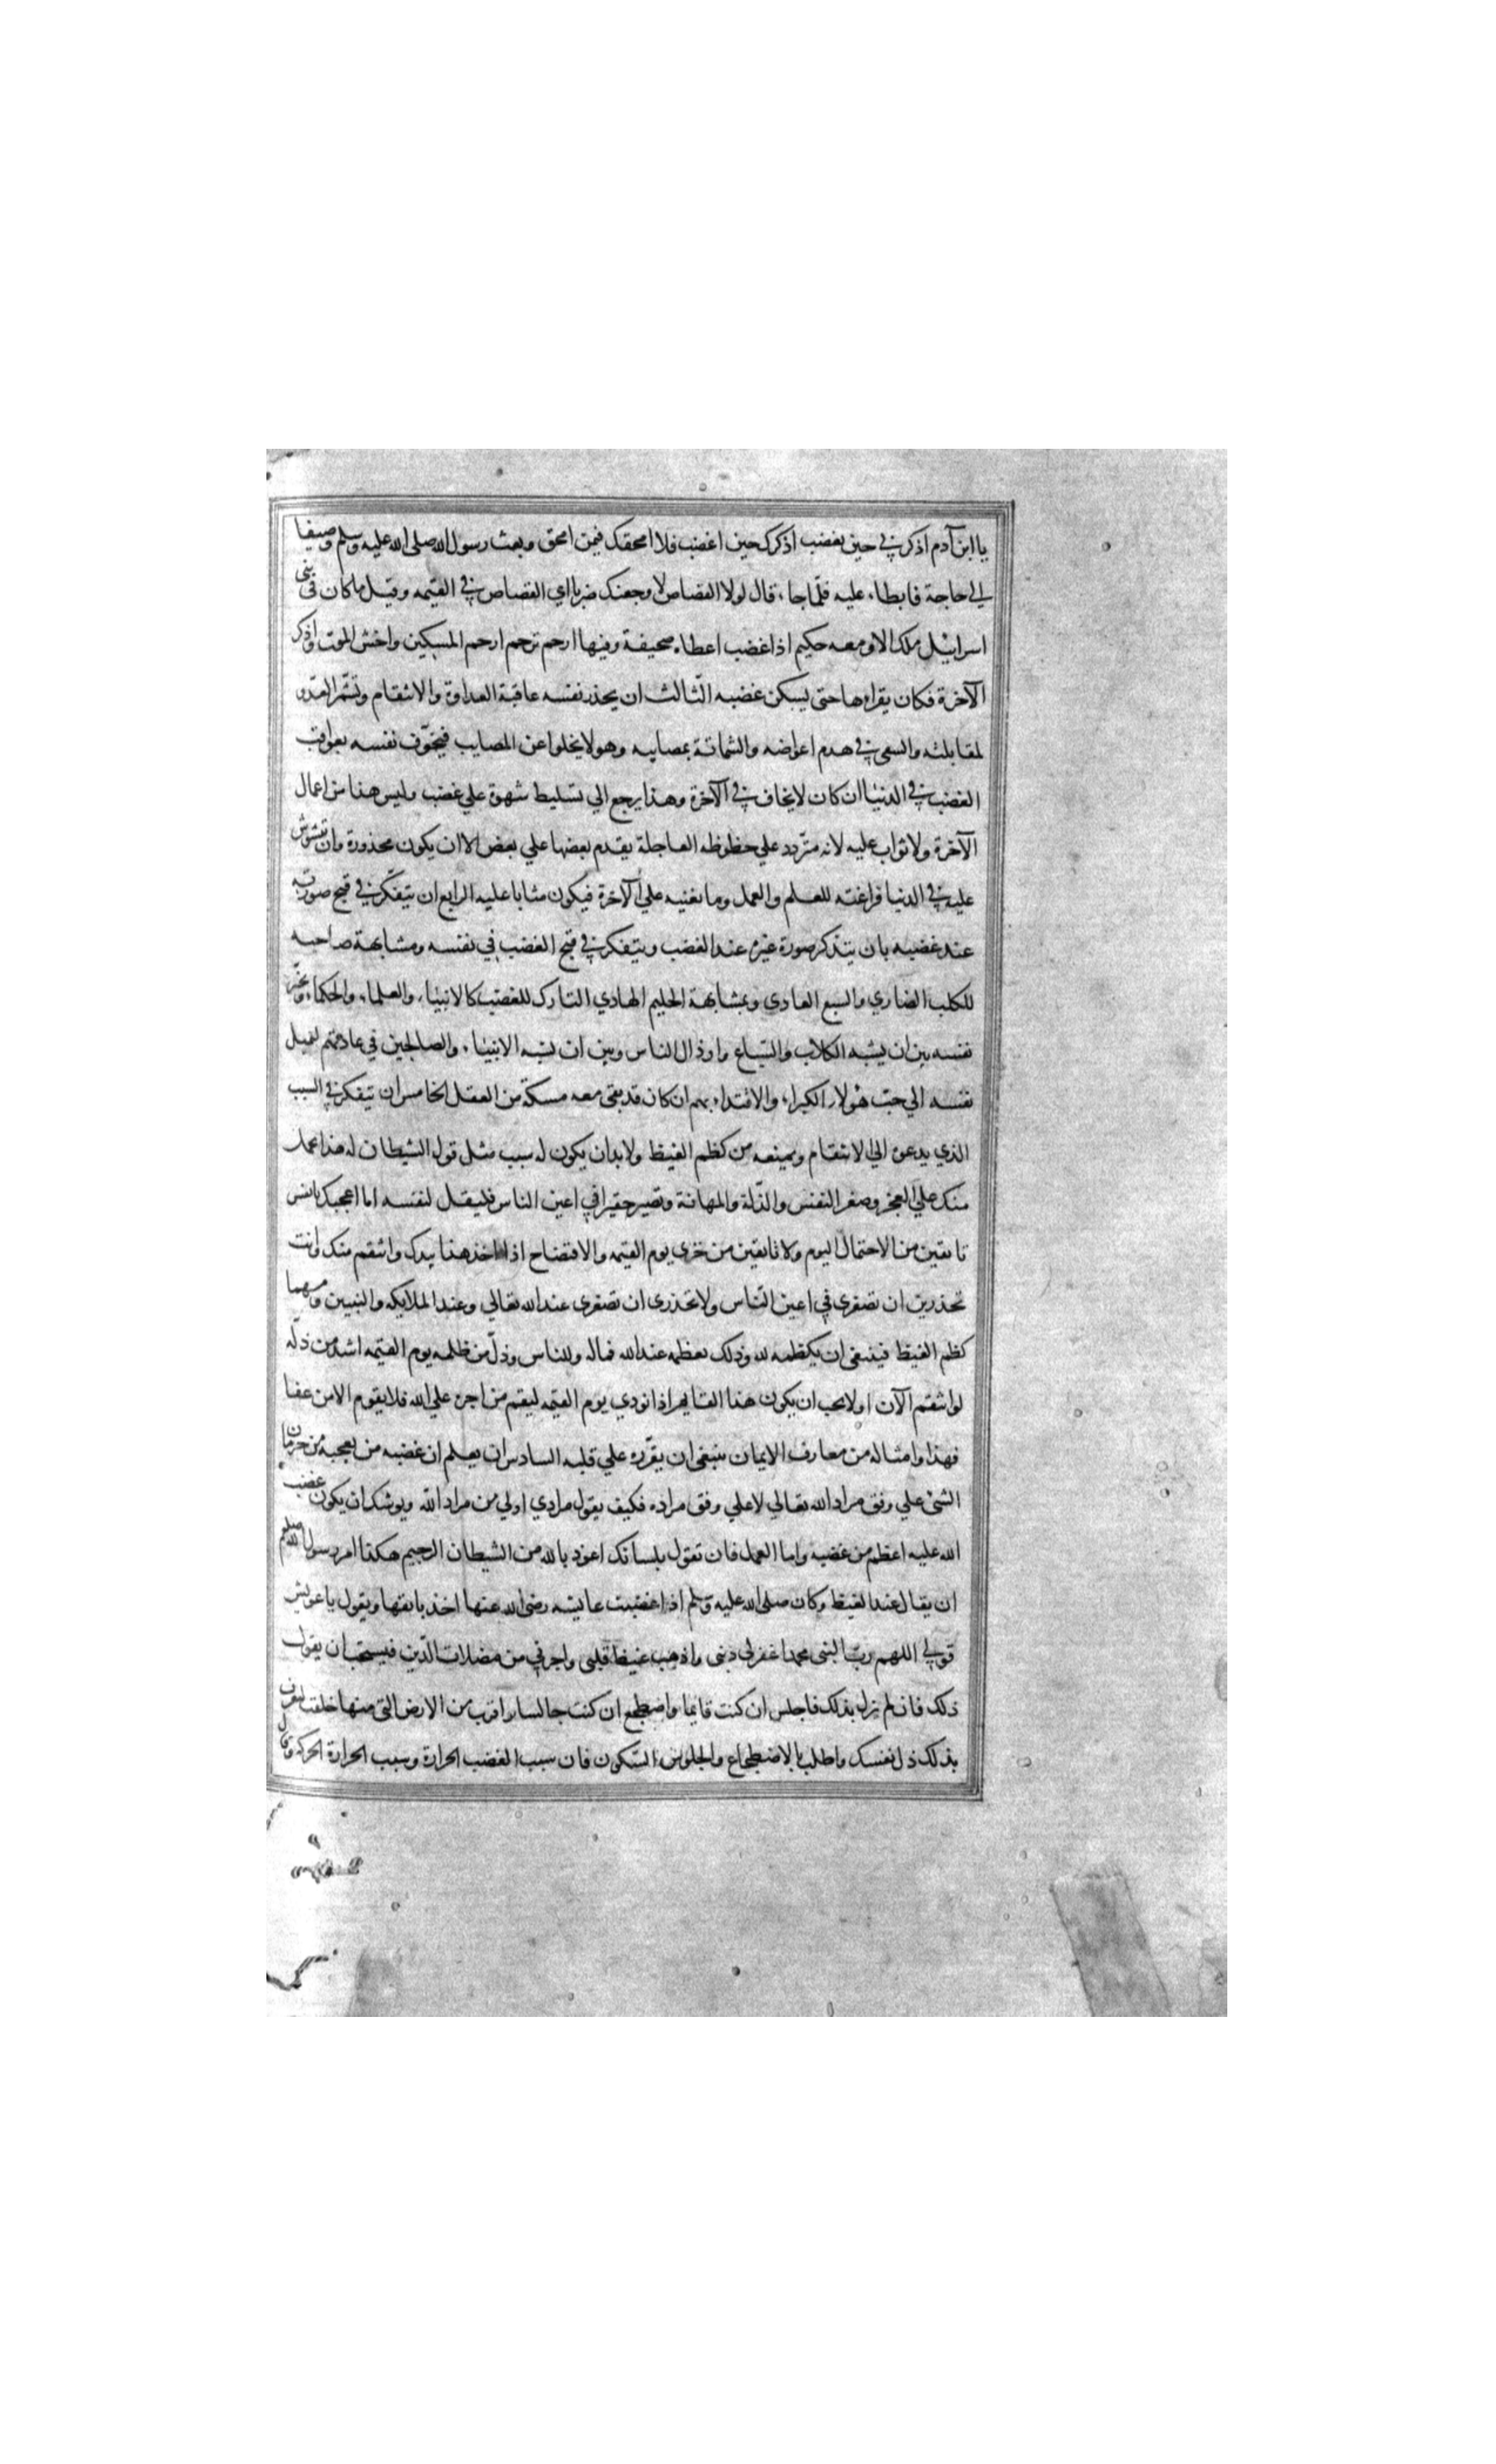 يا ابن آدم اذكرني حين تغضب اذكرك حين اغضب فلا امحقك فيمن امحق وبعث رسول الله صلى الله عليه وسلم وصيفا
الي حاجة فابطاء عليه فلما جاء قال لولا القصاص لاوجعتك ضربا اي القصاص في القيمه وقيل ماكان في بني
اسرائيل ملك الا و معه حكيم اذا غضب اعطاه صحيفة وفيها ارحم ترحم ارحم المسكين واخش الموت واذكر
الآخرة فكان يقراءها حتى يسكن غضبه الثالث ان يحذر نفسه عاقبة العداوة والانتقام وتشمر العدو
لمقابلته والسعي في هدم اعراضه والشماتة بمصايبه وهو لا يخلوا عن المصايب فيخوف نفسه بعواقب
الغضب في الدنيا ان كان لايخاف في الآخرة وهذا يرجع الي تسليط شهوة علي غضب وليس هذا من اعمال
الآخرة ولا ثواب عليه لانه متردد علي حظوظه العاجلة يقدم بعضها علي بعض الا ان يكون محذورة وان تتشوش
عليه في الدنيا فراغته للعلم والعمل وما يعنيه علي الآخرة فيكون مثابا عليه الرابع ان يتفكر في قبح صورته
عند غضبه بان يتذكر صورة غيره عند الغضب ويتفكر في قبح الغضب في نفسه ومشابهة صاحبه
للكلب الضاري والسبع العادي وبمشابهة الحليم الهادي التارك للغضب كالانبياء والعلماء والحكماء ويخير
نفسه بين ان يشبه الكلاب والسباع واوذال الناس وبين ان يشبه الانبياء والصالحين في عادتهم لتميل
نفسه الي حب هولاء الكبراء والاقتداء بهم ان كان قد بقى معه مسكة من العقل الخامس ان يتفكر في السبب
الذي يدعوه الي الانتقام ويمنعه من كظم الغيظ ولا بدان يكون له سبب مثل قول الشيطان له هذا يحمل
منك علي العجز وصغر النفس والذلة والمهانة وتصير حقيرا في اعين الناس فليقل لنفسه اما اعجبك يا نفس
تانفين من الاحتمال اليوم ولا تانفين من خزي يوم القيمه والافتضاح اذا اخذ هذا بيدك وانتقم منك وانت
تحذرين ان تصغري في اعين الناس ولا تحذري ان تصغري عند الله تعالي وعند الملايكه والنبيين ومهما
كظم الغيظ فينبغي ان يكظمه لله وذلك يعظمه عند الله فماله وللناس وذل من ظلمه يوم القيمه اشد من ذله
لو انتقم الآن اولا يحب ان يكون هذا القايم اذا نودي يوم القيمه ليقم من اجره علي الله فلا يقوم الا من عفا
فهذا وامثاله من معارف الايمان ينبغي ان يقرره علي قلبه السادس ان يعلم ان غضبه من تعجبه من جريان
الشئ علي وفق مراد الله تعالي لا علي وفق مراده فكيف يقول مرادي اولي من مراد الله ويوشك ان يكون غضب
الله عليه اعظم من غضبه واما العمل فان تقول بلسانك اعوذ بالله من الشيطان الرجيم هكذا امر رسول الله صلعم
ان يقال عند الغيظ وكان صلى الله عليه وسلم اذا غضبت عايشه رضى الله عنها اخذ بانفها ويقول يا عويش
قولي اللهم رب النبى محمد اغفرلى ذنبى واذهب غيظ قلبى واجرني من مضلات الفتن فيستحب ان يقول
ذلك فان لم يزل بذلك فاجلس ان كنت قايما واضطجع ان كنت جالسا واقرب من الارض التى منها خلقت لتعرف
بذلك ذل نفسك واطلب بالاضطجاع والجلوس السكون فان سبب الغضب الحرارة وسبب الحرارة الحركة وقال